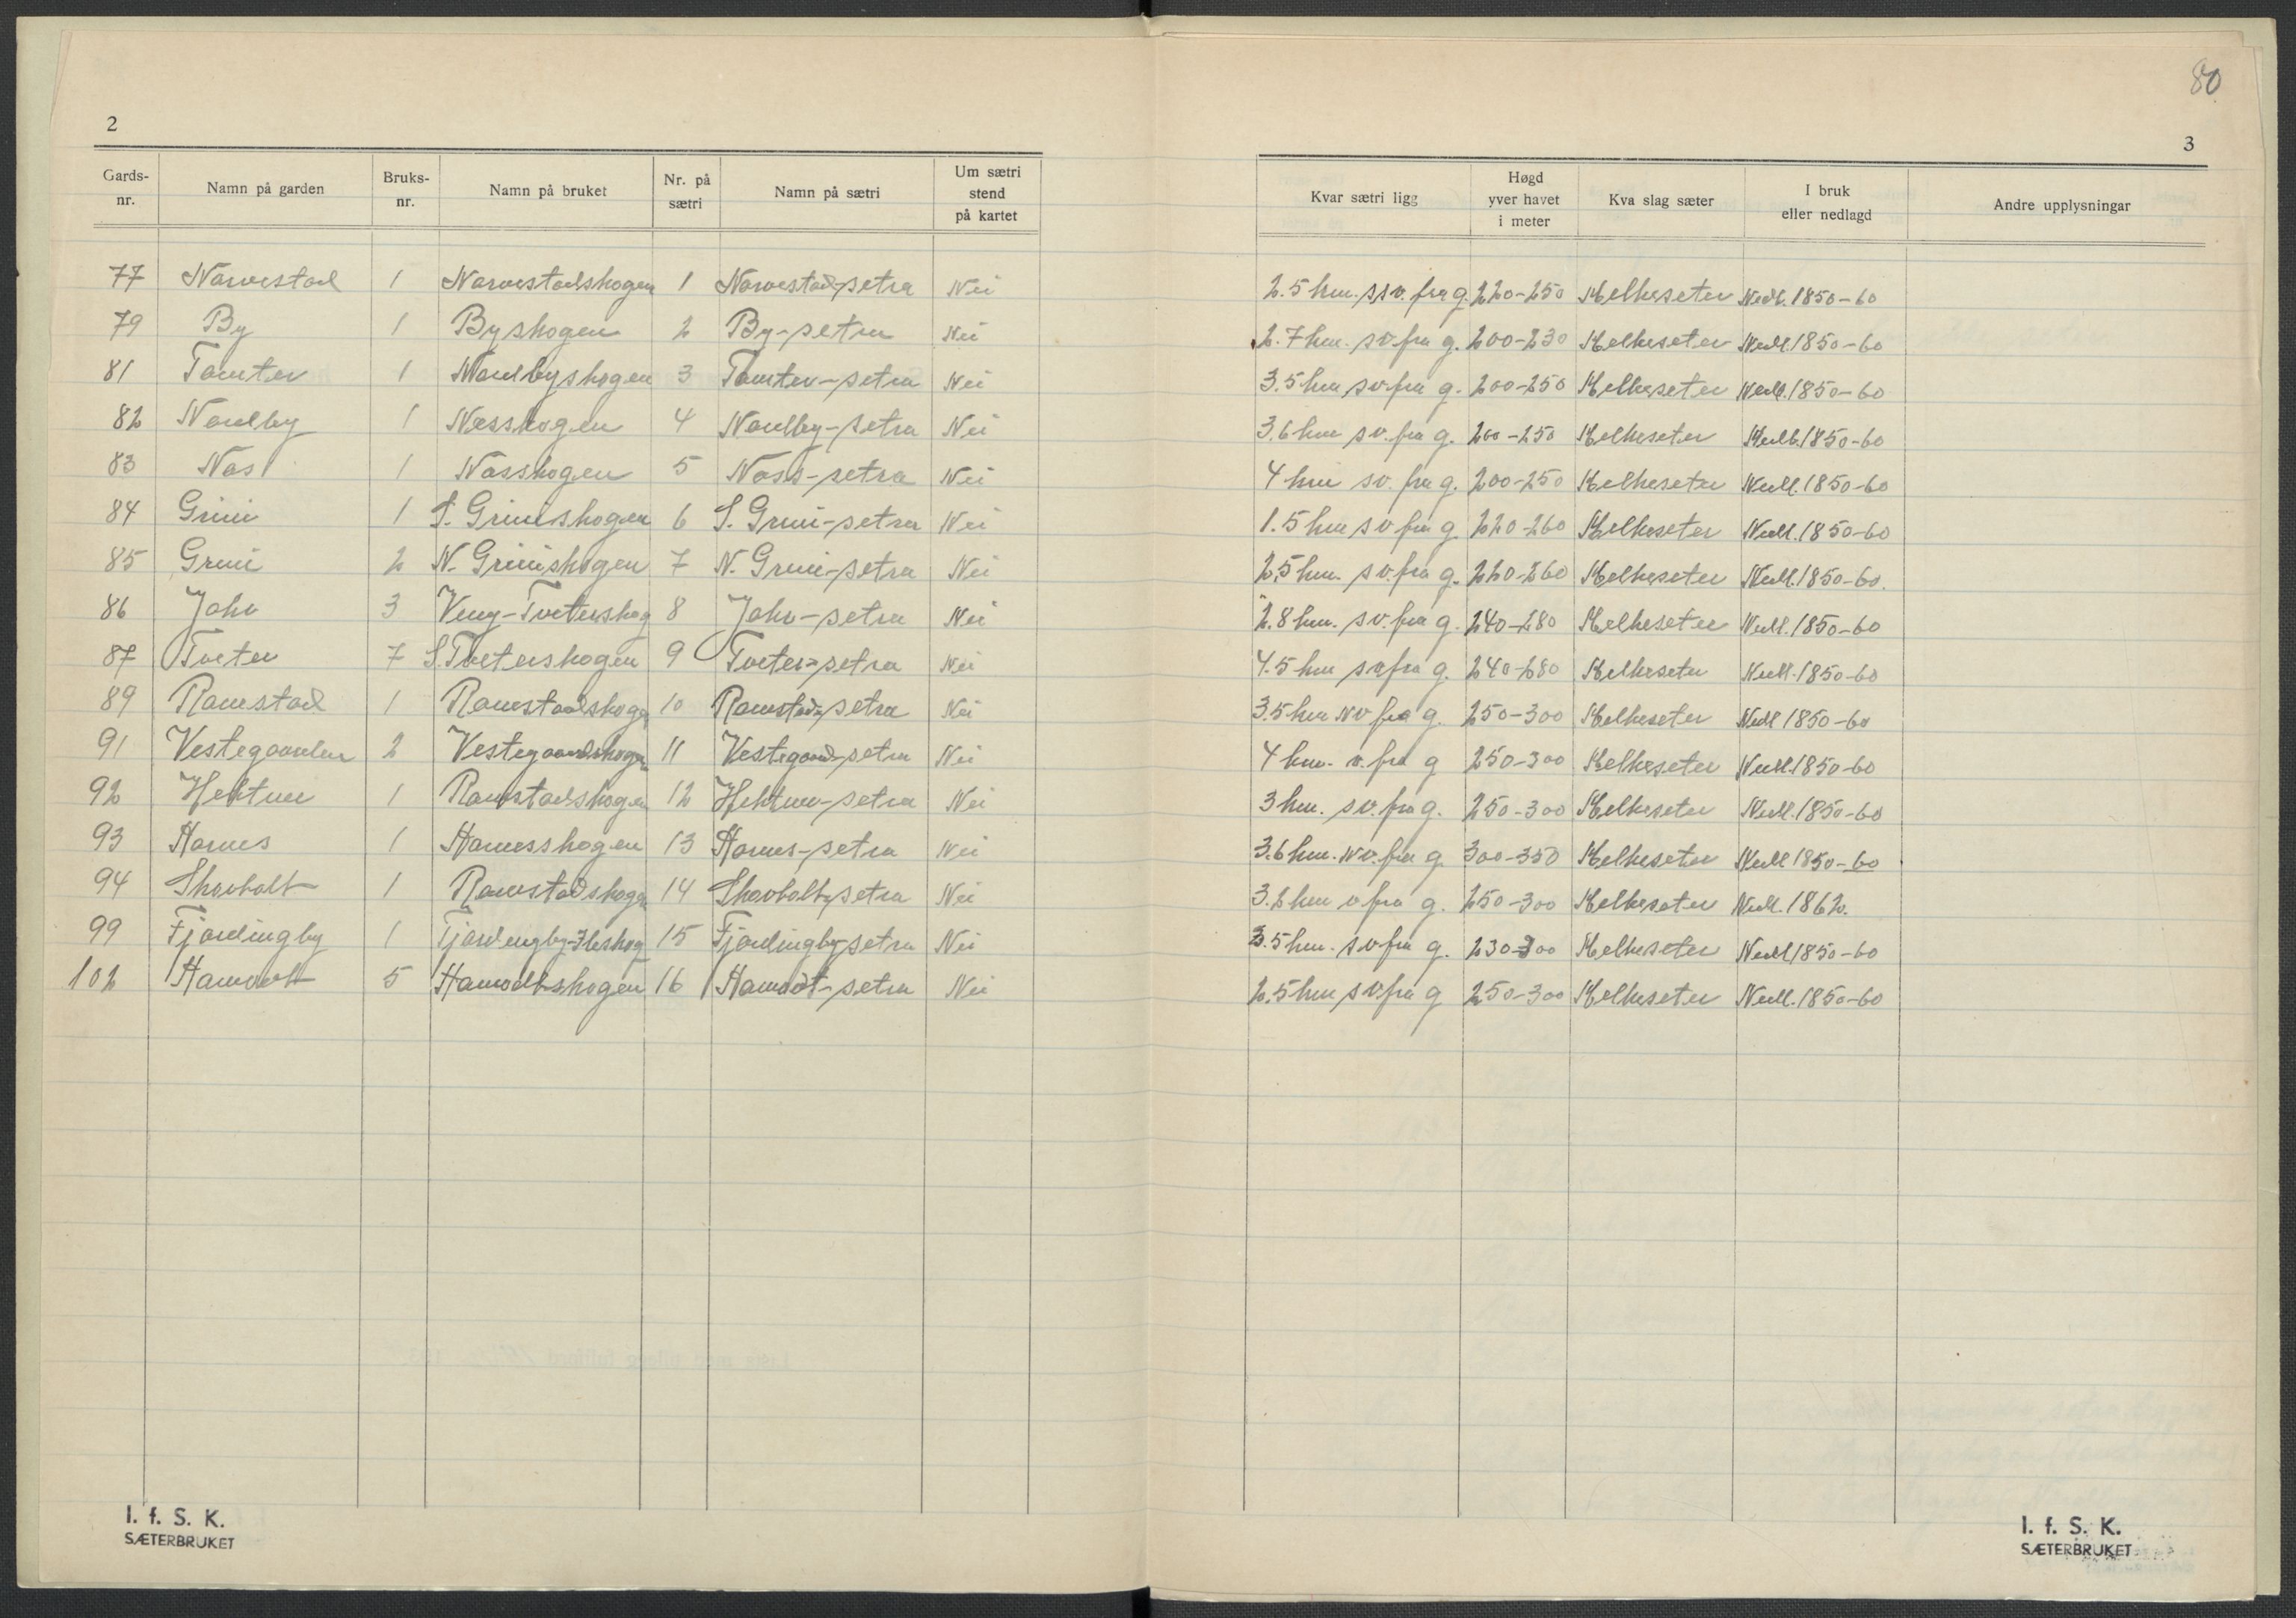 80
2
3
Gards-nr. Namn på garden Bruks-nr. Namn på bruket Nr. på sætri Namn på sætri Um sætri stend på kartet Kvar sætri ligg Høgd yver havet i meter Kva slag sæter I bruk eller nedlagd Andre upplysningar
77 Narvestad 1 Narvestadskogen 1 Narvestad-setra Nei 2.5 km. ssv. fra g. 220-250 Melkeseter Nedl. 1850-60
79 By 1 Byskogen 2 By-setra Nei 2.7 km. sv. fra g. 200-230 Melkeseter Nedl. 1850-60
81 Tomter 1 Nordbyskogen 3 Tomter-setra Nei 3.5 km sv. fra g. 200-250 Melkeseter Nedl. 1850-60
82 Nordby 1 Nesskogen 4 Nordby-setra Nei 3.6 km sv. fra g. 200-250 Melkeseter Nedl. 1850-60
83 Nas 1 Nasskogen 5 Nass-setra Nei 4 km sv. fra g. 200-250 Melkeseter Nedl. 1850-60
84 Grini 1 S. Griniskogen 6 S. Grini-setra Nei 1.5 km sv fra g 220-260 Melkeseter Nedl. 1850-60
85 Grini 2 N. Griniskogen 7 N. Grini-setra Nei 2.5 km. sv. fra g. 220-260 Melkeseter Nedl. 1850-60.
86 Jahr 3 Veng-Tveterskog 8 Jahr-setra Nei 2.8 km. sv. fra g. 240-280 Melkeseter Nedl. 1850-60
87 Tveter 7 S. Tveterskogen 9 Tveter-setra Nei 4.5 km sv fra g. 240-280 Melkeseter Nedl. 1850-60
89 Ramstad 1 Ramstadskogen 10 Ramstad-setra Nei 3.5 km NV fra g. 250-300 Melkeseter Nedl 1850-60
91 Vestegaarden 2 Vestegaardskogen 11 Vestegaard-setra Nei 4 km. v. fra g 250-300 Melkeseter Nedl. 1850-60
92 Hektner 1 Ramstadskogen 12 Hektner-setra Nei 3 km. sv. fra g. 250-300 Melkeseter Nedl. 1850-60
93 Harnes 1 Harnesskogen 13 Harnes-setra Nei 3.6 km. NV. fra g 300-350 Melkeseter Nedl 1850-60
94 Skovholt 1 Ramstadskogen 14 Skovholt-setra Nei 3.2 km v fra g. 250-300 Melkeseter Nedl. 1862.
99 Fjordingby 1 15 Fjordingby-setra Nei 3.5 km. sv fra g. 230-300 Melkeseter Nedl 1850-60
102 5 16 Nei 2.5 km sv fra g 250-300 Melkeseter Nedl. 1850-60
I. f. S. K.
SÆTERBRUKET
I. f. S. K.
SÆTERBRUKET